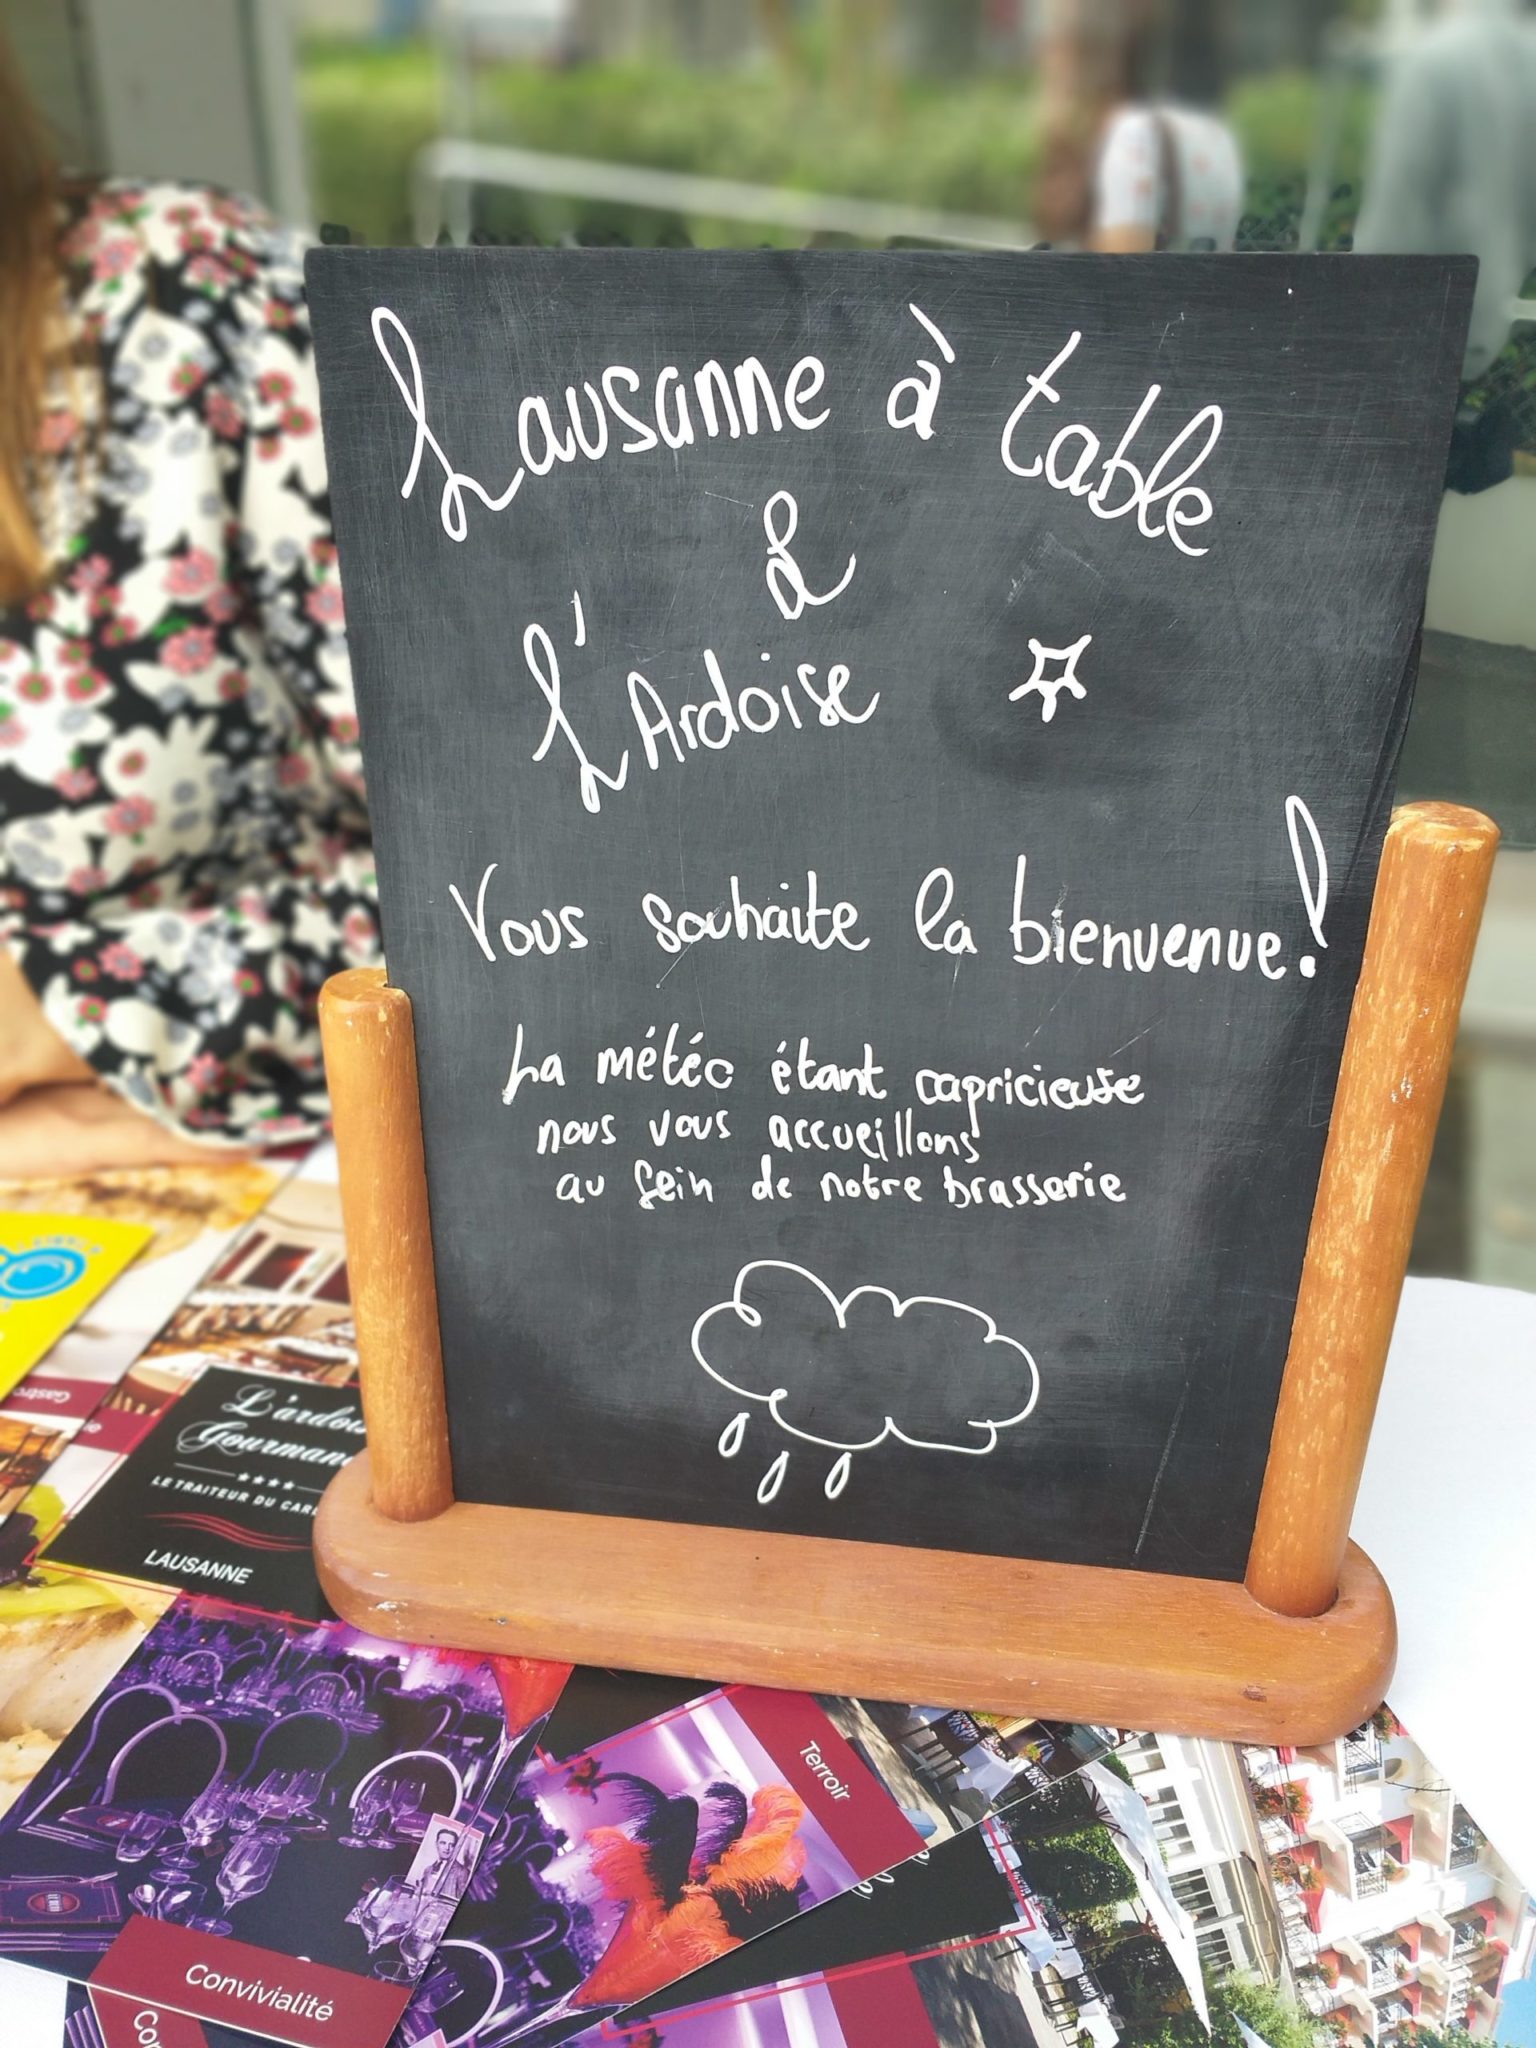 Lausanne à table
&
L'Ardoise
Vous souhaite la bienvenue!
La météo étant capricieuse
nous vous accueillons
au sein de notre brasserie
Gastro
L'ardois
Gourman
LE TRAITEUR DU CAR
LAUSANNE
Terroir
Convivialité
Con